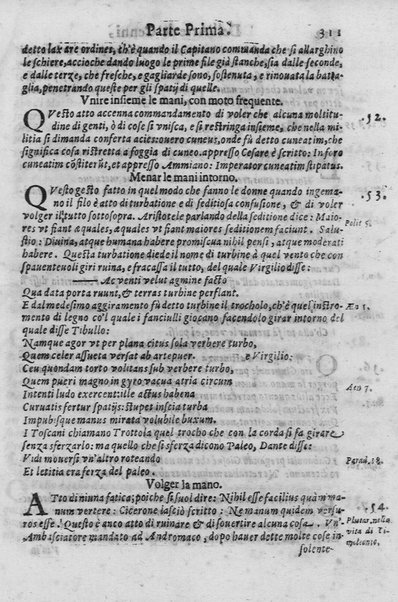 Parte Prima. 311
detto laxare ordines, ch'è quando il Capitano commanda che si allarghino
le schiere, accioche dando luogo le prime file già stanche, sia dalle seconde,
e dalle terze, che fresche, e gagliarde sono, sostenuta, e rinouata la batta-
glia, penetrando queste per gli spatij di quelle.
Vnire insieme le mani, con moto frequente.
QVesto atto accenna commandamento di voler che alcuna moltitu- 52.
dine di genti, ò di cose si vnisca, e si restringa insieme, che nella mi-
litia si dimanda conserta acies: ouero cuneus, onde fù detto cuneatim, che
significa cosa ristretta a foggia di cuneo. appresso Cesare è scritto: In foro
cuneatim cōstiterūt, et appresso Ammiano: Imperator cuneatim stipatus.
Menar le mani intorno.
QVesto gesto fatto in quel modo che fanno le donne quando ingema- 53.
no il filo è atto di turbatione e di seditiosa confusione, & di voler
volger il tutto sottosopra. Aristotele parlando della seditione dice: Maio- Polit 5.
res vt fiant æquales, æquales vt fiant maiores seditionem faciunt. Salu-
stio: Diuina, atque humana habere promiscua nihil pensi, atque moderati
habere. Questa turbatione diede il nome di turbine à quel vento che con
spauenteuoli giri ruina, e fracassa il tutto, del quale Virgilio disse:
—— Ac venti velut agmine facto
Qua data porta ruunt, & terras turbine perflant.
E dal medesimo aggiramento fù detto turbine il trocholo, ch'è quel instro- Æn 1.
mento di legno co'l quale i fanciulli giocano facendolo girar intorno, del
quale disse Tibullo:
Namque agor vt per plana citus sola verbere turbo,
Quem celer assueta versat ab arte puer. e Virgilio:
Ceu quondam torto volitans sub verbere turbo,
Quem pueri magno in gyro vacua atria circum Æn 7.
Intenti ludo exercent: ille actus habena
Curuatis fertur spatijs: stupet inscia turba
Impubisque manus mirata volubile buxum.
I Toscani chiamano Trottola quel trocho che con la corda si fa girare
senza sferzarlo: ma quello che si sferza dicono Paleo, Dante disse:
Vidi mouersi vn'altro roteando Parad. 18.
Et letitia era ferza del paleo.
Volger la mano.
ATto di niuna fatica; poiche si suol dire: Nihil esse facilius quàm ma- 54.
num vertere: Cicerone lasciò scritto: Ne manum quidem versu-
ros esse. Questo è anco atto di ruinare & di souertire alcuna cosa. Vn' Plutar. nella
Ambasciatore mandato ad Andromaco, dopo hauer dette molte cose in- vita di Ti-
moleonte.
solente-